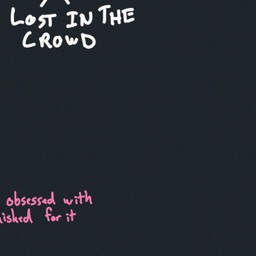 LOST IN THE
CROWD
obsessed with
for it